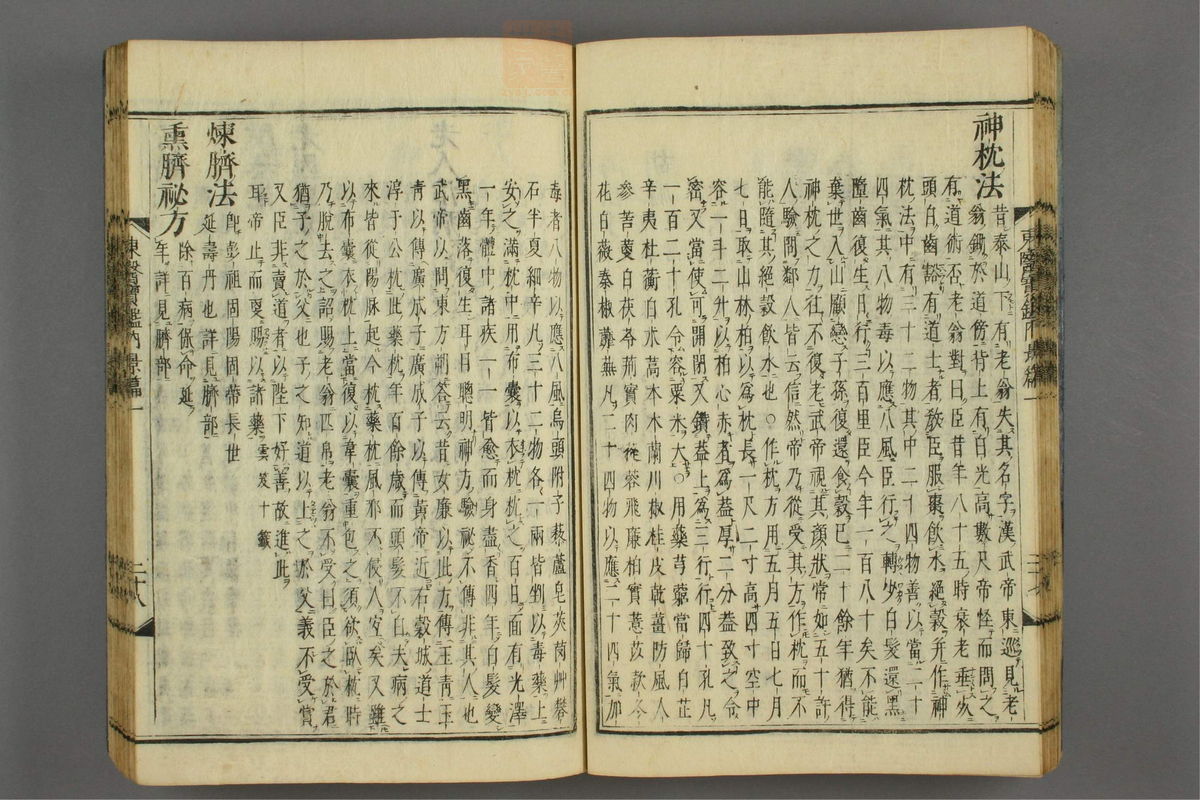 神枕法
昔泰山下有老翁失其名字漢武帝東巡見老
翁鋤於道傍背上有白光高數尺帝怪而問之
有道術否老翁對曰臣昔年八十五時衰老垂死
頭白齒豁有道士者敎臣服棗飮水絕穀幷作神
枕法中有三十二物其中二十四物善以當二十
四氣其八物毒以應八風臣行之轉少白髮還黑
墮齒復生日行三百里臣今年一百八十矣不能
棄世入山顧戀子孫復還食穀已二十餘年猶得
神枕之力往不復老武帝視其顏狀常如五十許
人驗問鄰人皆云信然帝乃從受其方作枕而不
能隨其絕穀飮水也○作枕方用五月五日七月
七日取山林柏以爲枕長一尺二寸高四寸空中
容一斗二升以柏心赤者爲蓋厚二分蓋致之令
密又當使可開閉又鑽蓋上爲三行行四十孔凡
一百二十孔令容粟米大○用藥芎藭當歸白芷
辛夷杜蘅白朮藁本木蘭川椒桂皮乾薑防風人
參苦蔓白茯苓荊實肉蓯蓉飛廉柏實薏苡款冬
花白薇秦椒蘼蕪凡二十四物以應二十四氣加
東醫寶鑑內景篇一
毒者八物以應八風烏頭附子藜蘆皂莢茵艸礬
石半夏細辛凡三十二物各一兩皆剉以毒藥上
安之滿枕中用布囊以衣枕枕之百日面有光澤
一年體中諸疾一一皆愈而身盡香四年白髮變
黑齒落復生耳目聰明神方驗祕不傳非其人也
武帝以問東方朔答云昔女廉以此方傳玉靑玉
靑以傳廣成子廣成子以傳黃帝近有穀城道士
淳于公枕此藥枕年百餘歲而頭髮不白夫病之
來皆從陽脉起今枕藥枕風邪不侵人宜矣又雖
以布囊衣枕上當復以韋囊重包之須欲臥枕時
乃脫去之詔賜老翁匹帛老翁不受曰臣之於君
猶子之於父也子之知道以上之於父義不受賞
又臣非賣道者也以陛下好善故進此
耳帝止而更賜以諸藥雲笈七籤
煉臍法
卽彭祖固陽固蒂長世
延壽丹也詳見臍部
熏臍祕方
除百病保命延
年詳見臍部
東醫寶鑑內景篇一
二十八